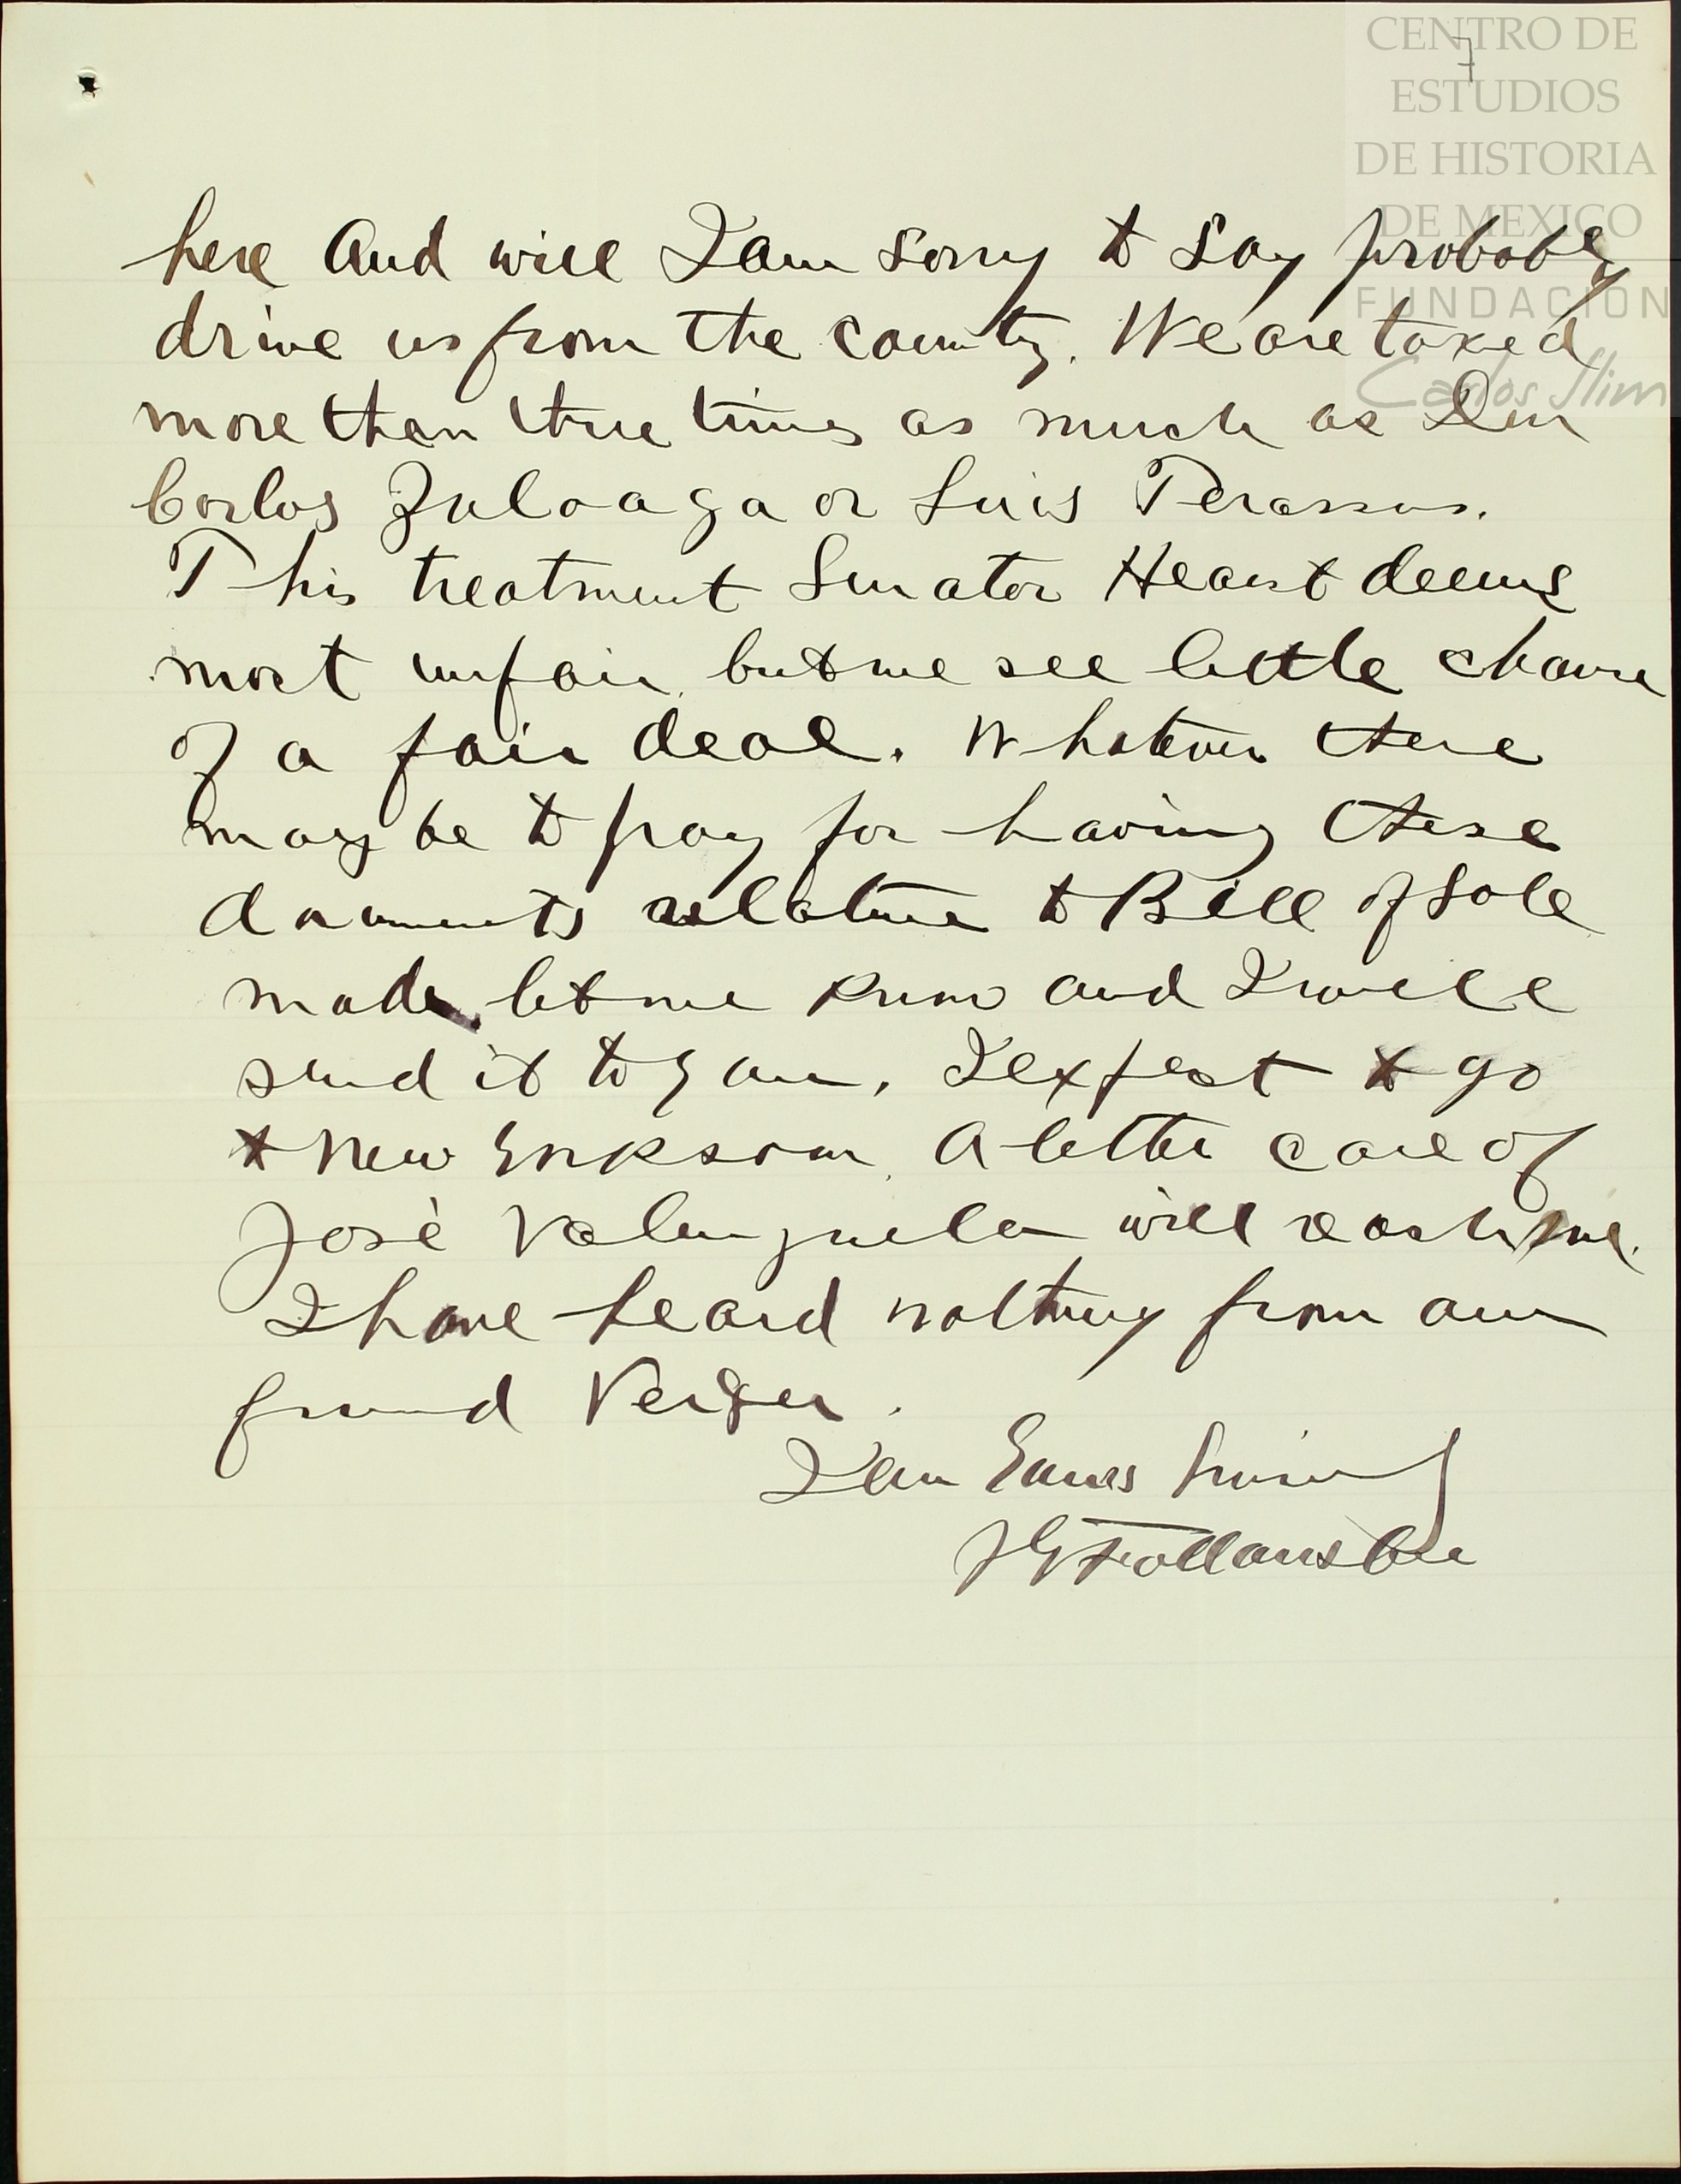 CENTRO DE
ESTUDIOS
DE HISTORIA
DE MEXICO
FUNDACIÓN
Carlos Slim
7
here And will I am sorry to say probably
drive us from the country. We are taxed
more than three times as much as Don
Carlos Zuloaga or Luis Terassus.
This treatment Senator Hearst deems
most unfair, but we see little chance
of a fair deal. Whatever there
may be to pay for having these
documents relative to Bill of Sale
made, let me know and I will
send it to you. I expect to go
to New York soon. A letter care of
José Valenzuela will reach me.
I have heard nothing from our
friend Verger.
I am Yours Sincerely
J G Follansbee